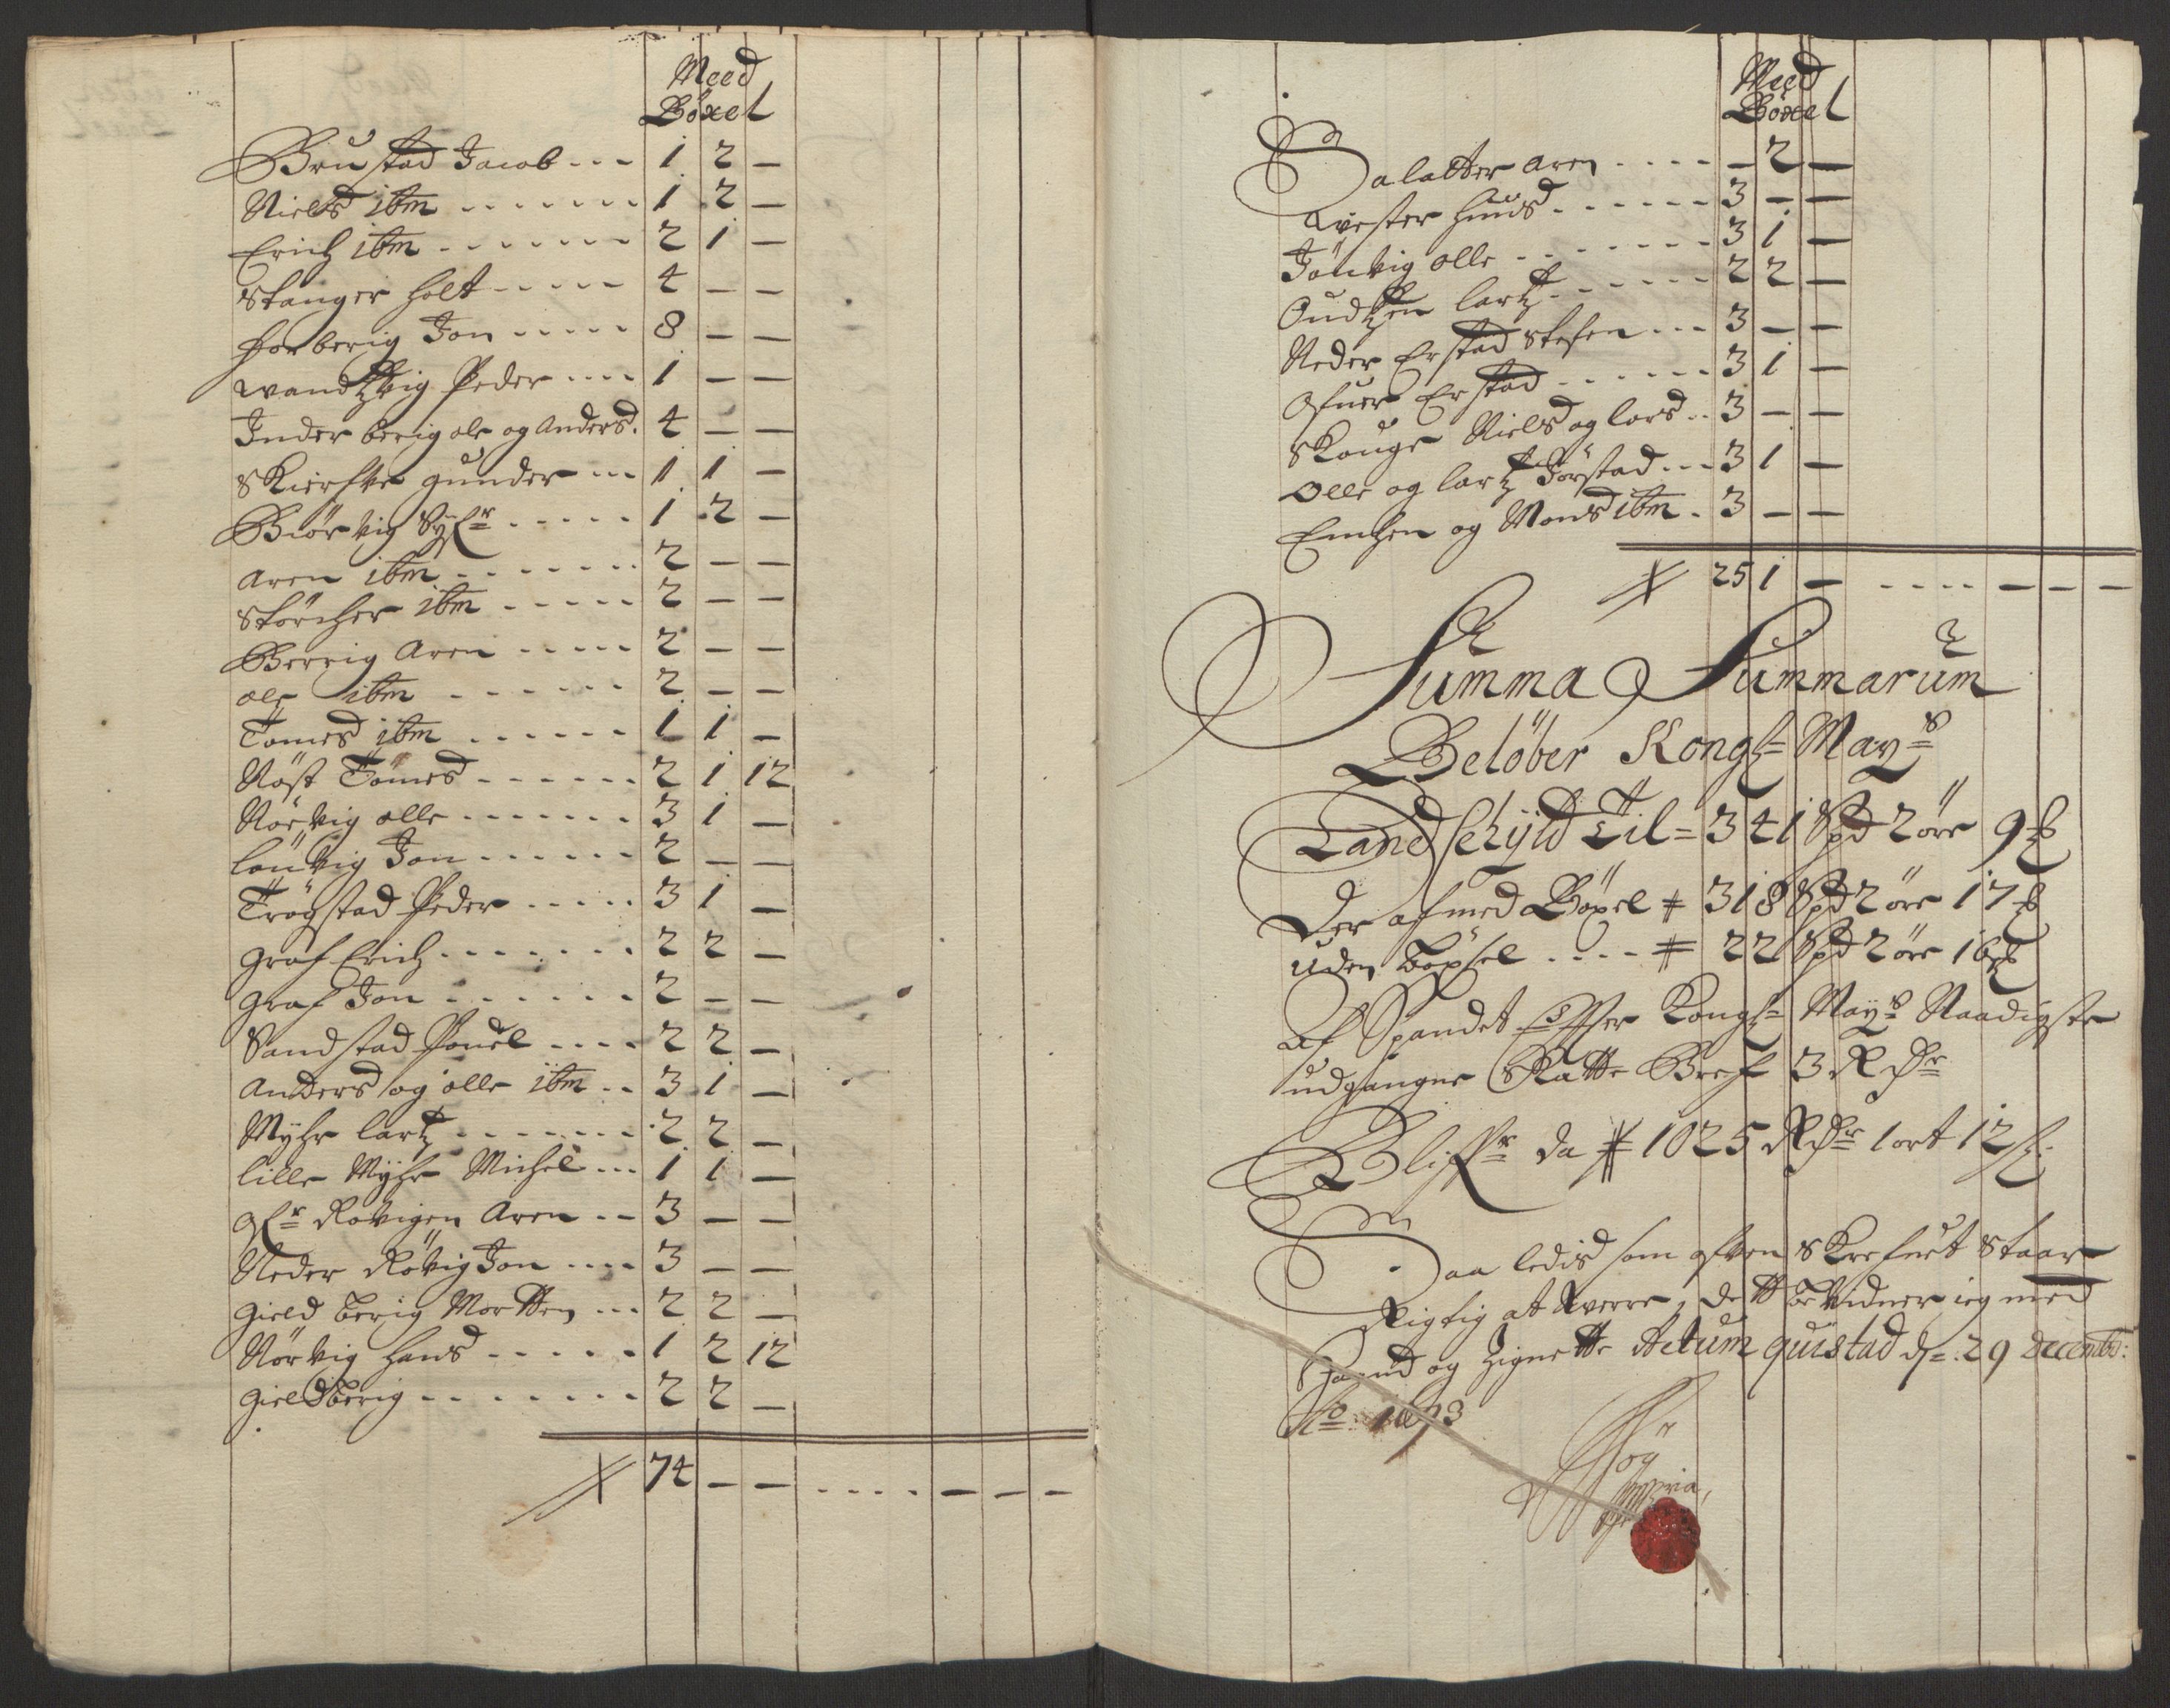 Meed
Böxel
Brustad Jacob --- 1 2 —
Niels ibm ------- 1 2 —
Erich ibm ------- 2 1 —
Stanger holt ----- 4 — —
Horberig Jon ----- 8 — —
Wandzvig Peder ---- 1 — —
Inderberig ole og Anders. 4 — —
Skierfve gunder --- 1 1 —
Biörvig Syfr ----- 1 2 —
Aren ibm ------- 2 — —
Störcher ibm ----- 2 — —
Berrig Aren ----- 2 — —
ole ibm ------ 2 — —
Tomes ibm ------ 1 1 —
Röst Tomes ------ 2 1 12
Nörvig olle ------- 3 1 —
lönvig Jon ------ 2 — —
Trögstad Peder ----- 3 1 —
Graf Erich ------- 2 2 —
Graf Jon ------ 2 — —
Sandstad Pouel ---- 2 2 —
Anders og olle ibm -- 3 1 —
Myhr lartz ------- 2 2 —
lille Myhr Michel --- 1 1 —
Ofr Rövigen Aren -- 3 — —
Neder Rövig Jon ---- 3 — —
Gield berig Mortten --- 2 2 —
Nörvig hans ----- 1 2 12
Gieldberig ------- 2 2 —
74 — — ---- — — —
Meed
Böxel
Salatter Aren ---- — 2 —
Wester huus ------ 3 — —
Jönvig olle ------- 3 1 —
Oudtzen lartz ------ 2 2 —
Neder Erstad Stefen --- 3 — —
Ofuer Erstad ------ 3 1 —
Skouge Niels og lars -- 3 — —
Olle og lartz Förstad --- 3 1 —
Emhen og Mons ibm . 3 — —
25 1 — ---- — — —
Summa Summarum
Belöber Kongl= May=s
Landschyld Til = 341 Spd 2 öre 9 ℔
Der af med Böxel # 318 Spd 2 öre 17 ℔
Uden Böxsel ---- # 22 Spd 2 öre 16 ℔
Af Spandet Effter Kongl= May=s Naadigste
udgangne Skatte Bref 3 Rdr
Blifr da # 1025 Rdr 1 ort 12 s:
Saa ledis som ofven Skrefuet Staar
Rigtig at Verre, dett bevidner ieg med
Haand og Zignette Actum quistad d=. 29 decembr:
Ao. 1693
mpria,